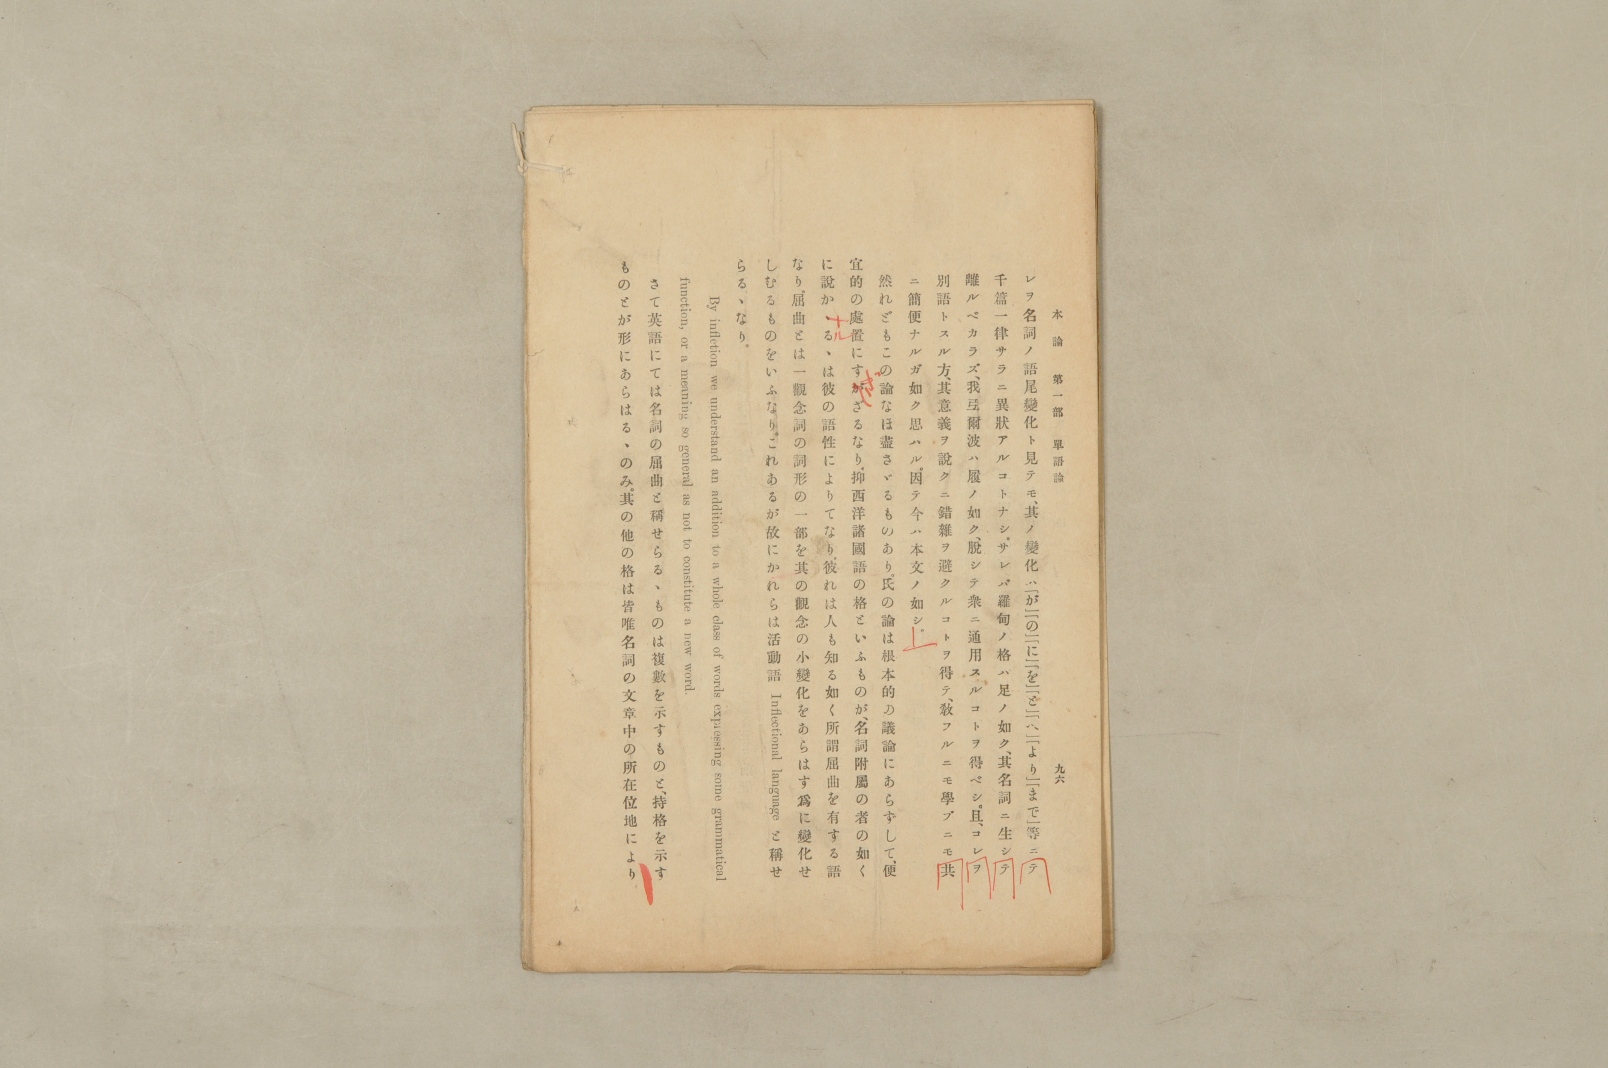 本論 第一部 單語論 九六
レヲ名詞ノ語尾變化ト見テモ、其ノ變化ハ「が」「の」「に」「を」「と」「へ」「より」「まで」等ニテ
千篇一律サラニ異狀アルコトナシ。サレバ羅甸ノ格ハ足ノ如ク、其名詞ニ生シテ
離ルベカラズ、我弖爾波ハ履ノ如ク、脫シテ衆ニ通用スルコトヲ得ベシ。且、コレヲ
別語トスル方、其意義ヲ說クニ錯雜ヲ避クルコトヲ得テ、敎フルニモ學ブニモ共
ニ簡便ナルガ如ク思ハル。因テ今ハ本文ノ如シ。
然れどもこの論なほ盡さゞるものあり。氏の論は根本的の議論にあらずして、便
宜的の處置にすがざるなり。抑西洋諸國語の格といふものが、名詞附屬の者の如く
ぎ
に說かゝるゝは彼の語性によりてなり。彼れは人も知る如く所謂屈曲を有する語
ナル
なり。屈曲とは一觀念詞の詞形の一部を其の觀念の小變化をあらはす爲に變化せ
しむるものをいふなり。これあるが故にかれらは活動語 Inflectional language と稱せ
らるゝなり。
By infletion we understand an addition to a whole class of words expressing some grammatical
function, or a meaning so general as not to constitute a new word.
さて英語にては名詞の屈曲と稱せらるゝものは複數を示すものと、持格を示す
ものとが形にあらはるゝのみ。其の他の格は皆唯名詞の文章中の所在位地により